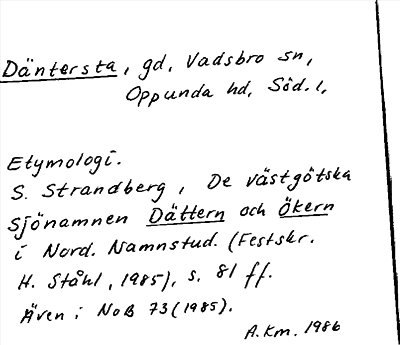 Däntersta, gd, Vadsbro sn,
Oppunda hd, Söd. l,
Etymologi.
S. Strandberg, De västgötska
sjönamnen Dättern och Ökern
i Nord. Namnstud. (Festskr.
H. Ståhl, 1985), s. 81 ff.
Även i NoB 73 (1985).
A.Km. 1986